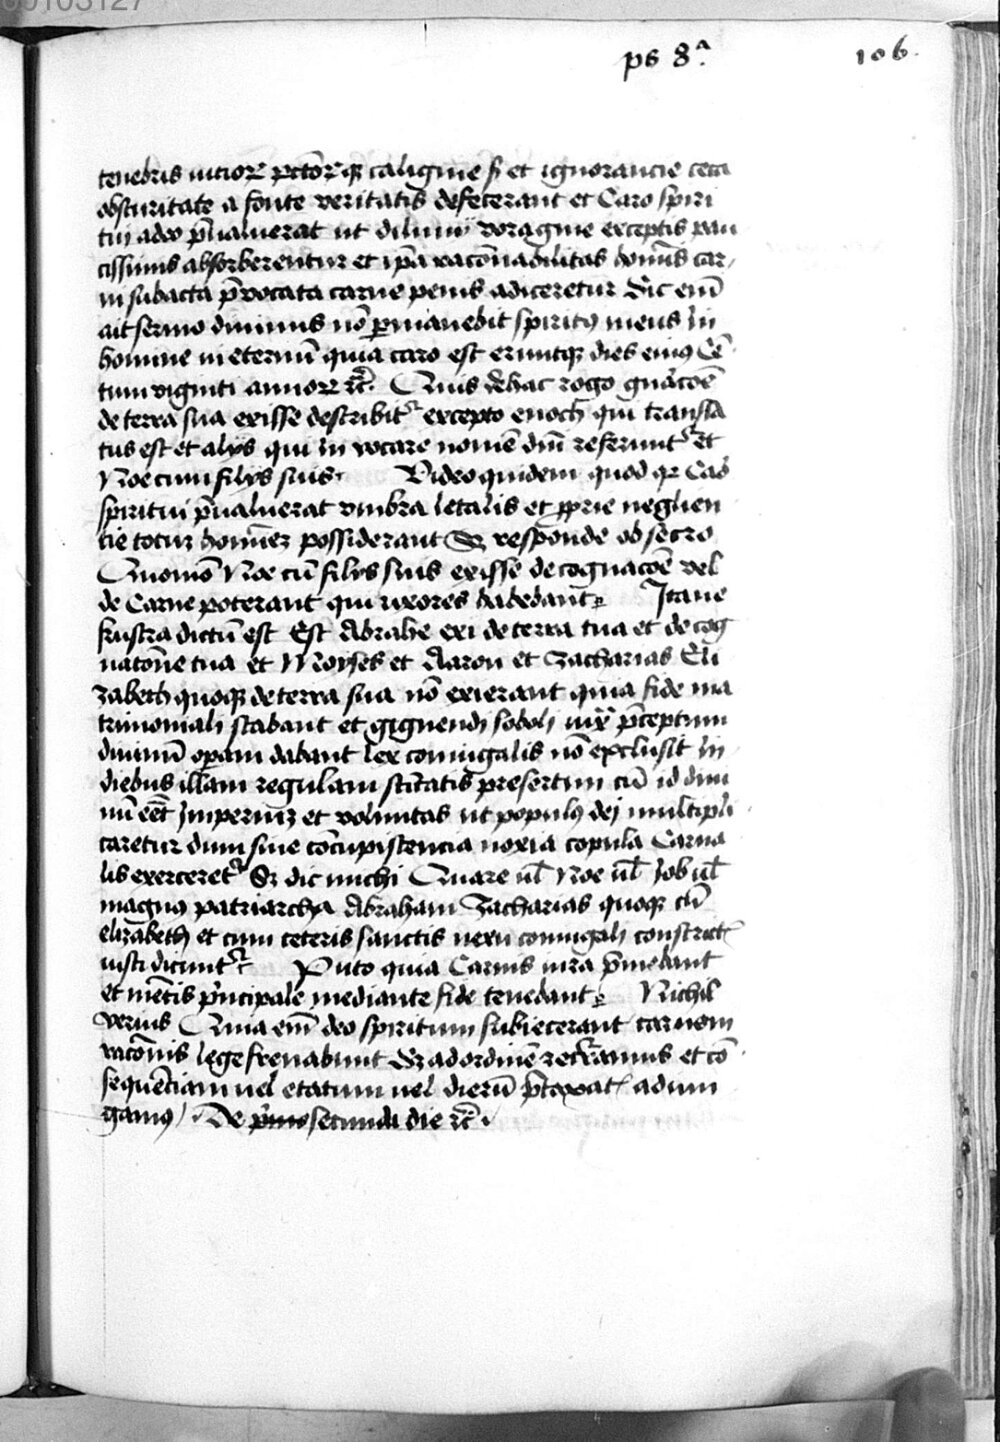 00103127
ps 8ª.
106.
tenebris vicior pctorq caligine si et ignorancie ceca
obscuritate a fonte veritatis defecerant et Caro spiri
tui adeo pualuerat ut diluuij voragine exceptis pau
cissimis absorberentur et ipa racōnabilitas homīs car
ni subacta puocata carne penis adiceretur Sic enī
ait sermo diuinus nō pmanebit spiritꝯ meus in
homine in eternū quia caro est eruntqꝫ dies eiꝯ Cē
tum viginti annoꝝ ꝛc̄. Quis de hac rogo gnacōē
de terra sua exisse describitᷣ excepto enoch qui transla
tus est et alijs qui in vocare nomē dnī referuntᷣ et
Noe cum filijs suis. Video quidem quod qꝛ Caō
spiritui pualuerat vmbra letalis et pprie neglien
cie totuꝫ homīeꝫ possiderant Sꝫ responde obsecro
Quomō Noe cū filijs suis exisse de cognacōē vel
de Carne poterant qui vxores habebant Itane
frustra dictū est Est Abrahe exi de terra tua et de cog
natōne tua et Moyses et Aaron et Zacharias Eli
zabeth quoqꝫ de terra sua nō exierant quia fide ma
trimoniali stabant et gignendi soboli iuxͣ pceptum
diuinū opam dabant lex coniugalis nō exclusit in
diebus illam regulam sctītatis presertim cū id diui
nū eēt Imperiuꝫ et voluntas ut populꝯ dei multipli
caretur dum sine cōcupiscencia noxia copula Carna
lis exerceretᷣ Sꝫ dic michi Quare ul̄ Noe ul̄ Iob ul̄
magnꝯ patriarcha Abraham Zacharias quoqꝫ cū
elizabeth et cum ceteris sanctis nexu coniugali constricti
iusti dicuntᷣ Puto quia Carnis iura pmebant
et mētis pncipale mediante fide tenebant Nichil
verius Quia enī deo spiritum subiecerant carnem
racōnis lege frenabunt Sꝫ ad ordinē retͣhamus et cō
sequēciam vel etatum vel dierū ptaxat adiun
gamꝯ / . De pmo secunda die ꝛc̄ .